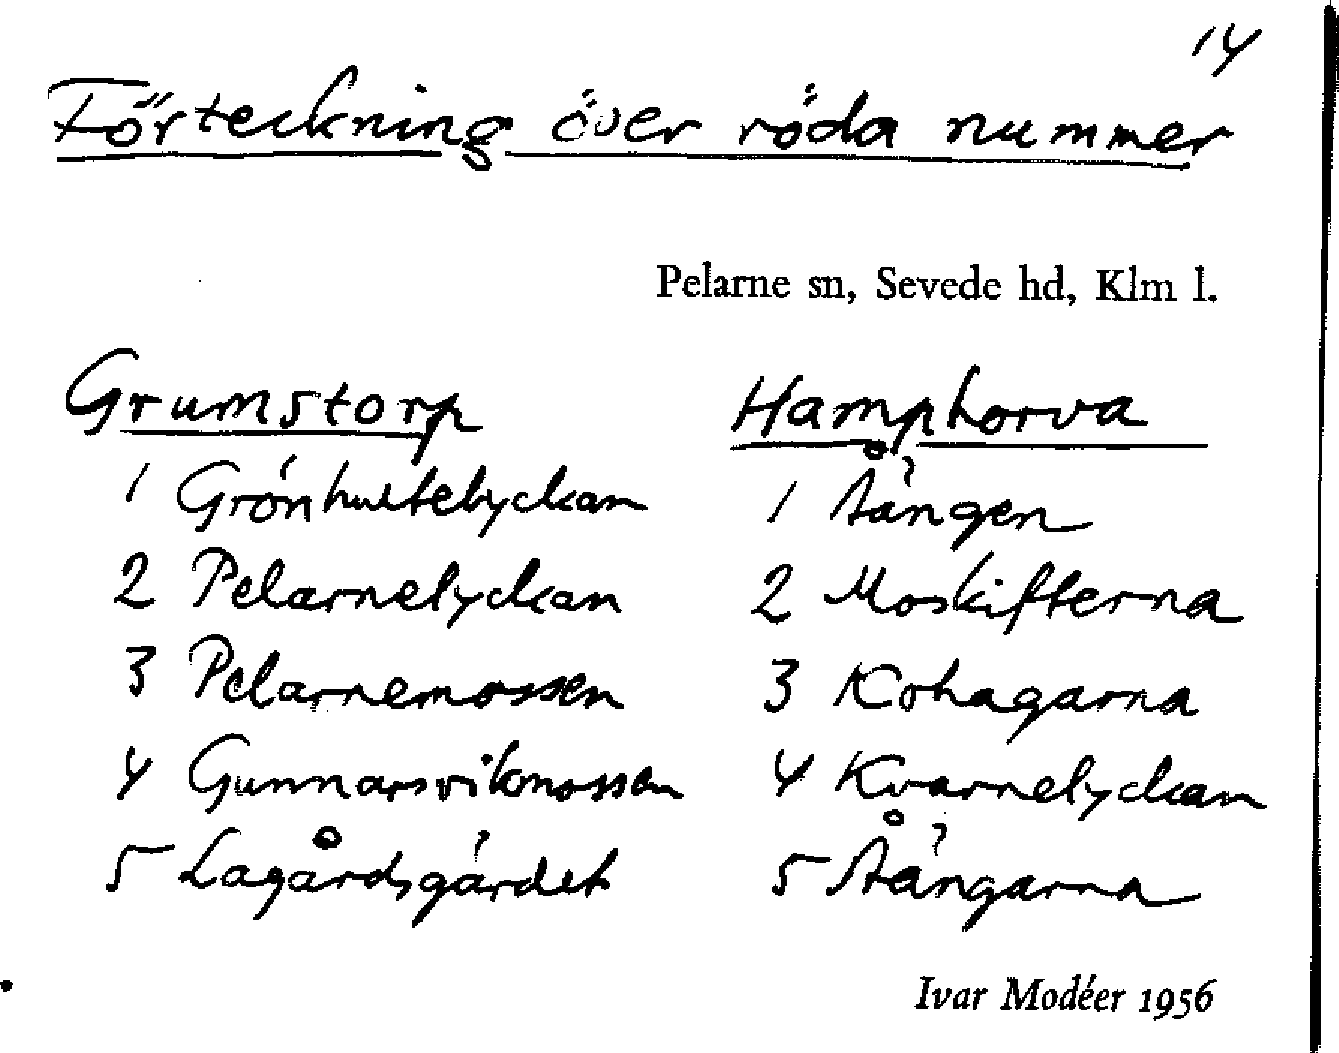 14
Förteckning över röda nummer
Pelarne sn, Sevede hd, Klm l.
Grumstorp
1 Grönhultelyckan
2 Pelarnelyckan
3 Pelarnemossen
4 Gunnarsvikmossen
5 Lagårdsgärdet
Hamphorva
1 Åängen
2 Moskifterna
3 Kohagarna
4 Kvarnelyckan
5 Åängarna
Ivar Modéer 1956